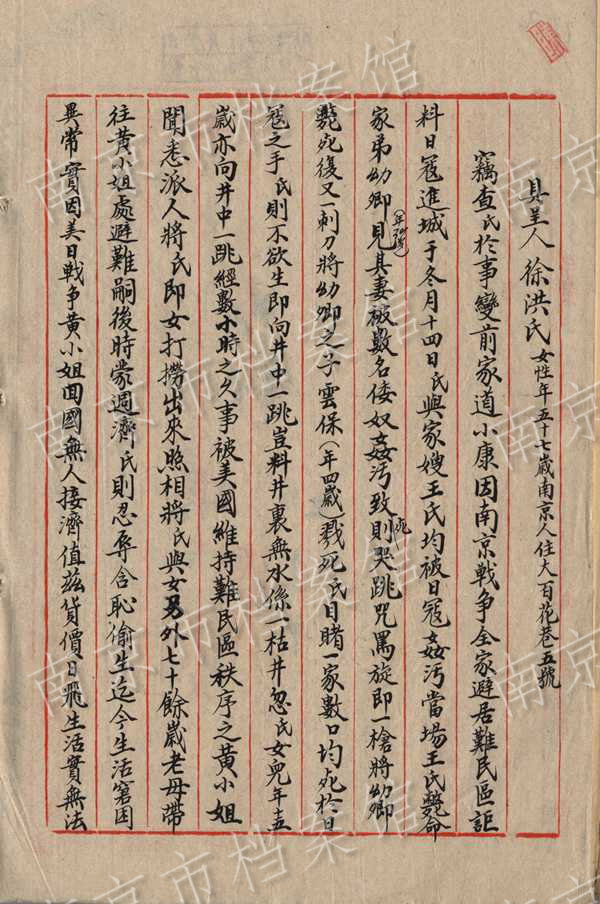 具呈人徐洪氏女性年五十七歲南京人住大百花巷五號
竊查氏於事變前家道小康因南京戰争全家避居難民區詎
料日寇進城于冬月十四日氏與家嫂王氏均被日寇姦汚當場王氏斃命
家弟幼卿見其妻被數名倭奴姦汚致死則哭跳咒罵旋即一槍將幼卿
斃死復又一刺刀將幼卿之子雲保(年四歲)戳死氏目睹一家數口均死於日
寇之手氏則不欲生即向井中一跳豈料井裏無水係一枯井忽氏女兒年十五
歲亦向井中一跳經數小時之久事被美國維持難民區秩序之黄小姐
聞悉派人將氏即女打撈出來照相將氏與女另外七十餘歲老母帶
往黄小姐處避難嗣後時蒙週濟氏則忍辱含恥偷生迄今生活窘困
異常實因美日戰争黄小姐囬國無人接濟值茲貨價日飛生活實無法
南京市档案馆